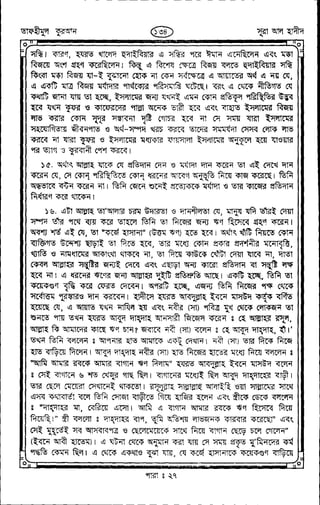 তাফহীমুল কুরআন
১৩৪
সূরা আল হাদীদ
সন্ধি। কারণ, হযরত খালেদ হুদাইবিয়ার এ সন্ধির পরে ঈমান এনেছিলেন এবং মক্কা
বিজয়ে অংশ গ্রহণ করেছিলেন। কিন্তু এ বিশেষ ক্ষেত্রে বিজয় বলতে হুদাইবিয়ার সন্ধি
কিংবা মক্কা বিজয় যা-ই বুঝানো হোক না কেন সর্বক্ষেত্রে এ আয়াতের অর্থ এ নয় যে,
এ একটি মাত্র বিজয় মর্যাদার পার্থক্যের পরিসমাপ্তি ঘটেছে। বরং এ থেকে নীতিগত যে
কথাটি জানা যায় তা হচ্ছে, ইসলামের জন্য যখনই এমন কোন প্রতিকূল পরিস্থিতির উদ্ভব
হবে যখন কুফর ও কাফেরদের পাল্লা অনেক ভারী হবে এবং বাহ্যত ইসলামের বিজয়
লাভ করার কোন সুদূর সম্ভাবনা দৃষ্টি গোচর হবে না সে সময় যারা ইসলামের
সহযোগিতায় জীবনপাত ও অর্থ-সম্পদ খরচ করবে তাদের সমমর্যাদা সেসব লোক লাভ
করবে না যারা কুফর ও ইসলামের মধ্যকার ফায়সালা ইসলামের অনুকূলে হয়ে যাওয়ার
পর ত্যাগ ও কুরবানী পেশ করবে।
১৫. অর্থাৎ আল্লাহ যাকে যে প্রতিদান দেন ও মর্যাদা দান করেন তা এই দেখে দান
করেন যে, সে কোন্ পরিস্থিতিতে কোন্ ধরনের আবেগ অনুভূতি নিয়ে কাজ করেছে। তিনি
অন্ধভাবে বন্টন করেন না। তিনি জেনে শুনেই প্রত্যেককে মর্যাদা ও তার কাজের প্রতিদান
নির্ধারণ করে থাকেন।
১৬. এটা আল্লাহ তা'আলার চরম উদারতা ও দানশীলতা যে, মানুষ যদি তাঁরই দেয়া
সম্পদ তাঁর পথে ব্যয় করে তাহলে তিনি তা নিজের জন্য ঋণ হিসেবে গ্রহণ করেন।
অবশ্য শর্ত এই যে, তা "কর্জে হাসানা" (উত্তম ঋণ) হতে হবে। অর্থাৎ খাঁটি নিয়তে কোন
ব্যক্তিগত উদ্দেশ্য ছাড়াই তা দিতে হবে, তার মধ্যে কোন প্রকার প্রদর্শনীর মনোবৃত্তি,
খ্যাতি ও নামধামের আকাংখা থাকবে না, তা দিয়ে কাউকে খোঁটা দেয়া যাবে না, দাতা
কেবল আল্লাহর সন্তুষ্টির জন্যই দেবে এবং এছাড়া অন্য কারো প্রতিদান বা সন্তুষ্টি লক্ষ্য
হবে না। এ ধরনের ঋণের জন্য আল্লাহর দুইটি প্রতিশ্রুতি আছে। একটি হচ্ছে, তিনি তা
কয়েকগুণ বৃদ্ধি করে ফেরত দেবেন। অপরটি হচ্ছে, এজন্য তিনি নিজের পক্ষ থেকে
সর্বোত্তম পুরস্কারও দান করবেন। হাদীসে হযরত আবদুল্লাহ ইবনে মাসউদ কর্তৃক বর্ণিত
হয়েছে যে, এ আয়াত যখন নাযিল হয় এবং নবীর (সা) পবিত্র মুখ থেকে লোকজন তা
শুনতে পায় তখন হযরত আবুদ দাহদাহ আনসারী জিজ্ঞেস করেন : হে আল্লাহর রসূল,
আল্লাহ কি আমাদের কাছে ঋণ চান? জবাবে নবী (সা) বলেন : হে আবুদ দাহদাহ, হাঁ।'
তখন তিনি বললেন : আপনার হাত আমাকে একটু দেখান। নবী (সা) তার দিকে নিজে
হাত বাড়িয়ে দিলেন। আবুদ দাহদাহ নবীর (সা) হাত নিজের হাতের মধ্যে নিয়ে বললেন :
"আমি আমার রবকে আমার বাগান ঋণ দিলাম" হযরত আবদুল্লাহ ইবনে মাসউদ বলেন
: সেই বাগানে ৬ শত খেজুর গাছ ছিল। বাগানের মধ্যেই ছিল আবুদ দাহদাহের বাড়ী।
তার ছেলে মেয়েরা সেখানেই থাকতো। রসূলুল্লাহ সাল্লাল্লাহু আলাইহি ওয়া সাল্লামের সাথে
এসব কথাবার্তা বলে তিনি সোজা বাড়ীতে গিয়ে হাজির হলেন এবং স্ত্রীকে ডেকে বললেন
: "দাহদাহর মা, বেরিয়ে এসো। আমি এ বাগান আমার রবকে ঋণ হিসেবে দিয়ে
দিয়েছি।" স্ত্রী বললো : দাহদাহর বাপ, তুমি অতিশয় লাভজনক কারবার করেছো" এবং
সেই মুহূর্তেই সব আসবাবপত্র ও ছেলেমেয়েকে সাথে নিয়ে বাগান ছেড়ে চলে গেলেন"
(ইবনে আবী হাতেম)। এ ঘটনা থেকে অনুমান করা যায় সে সময় প্রকৃত মু'মিনদের কর্ম
পদ্ধতি কেমন ছিল। এ থেকে একথাও বুঝা যায়, যে কর্জে হাসানাকে কয়েকগুণ বাড়িয়ে
পারা : ২৭